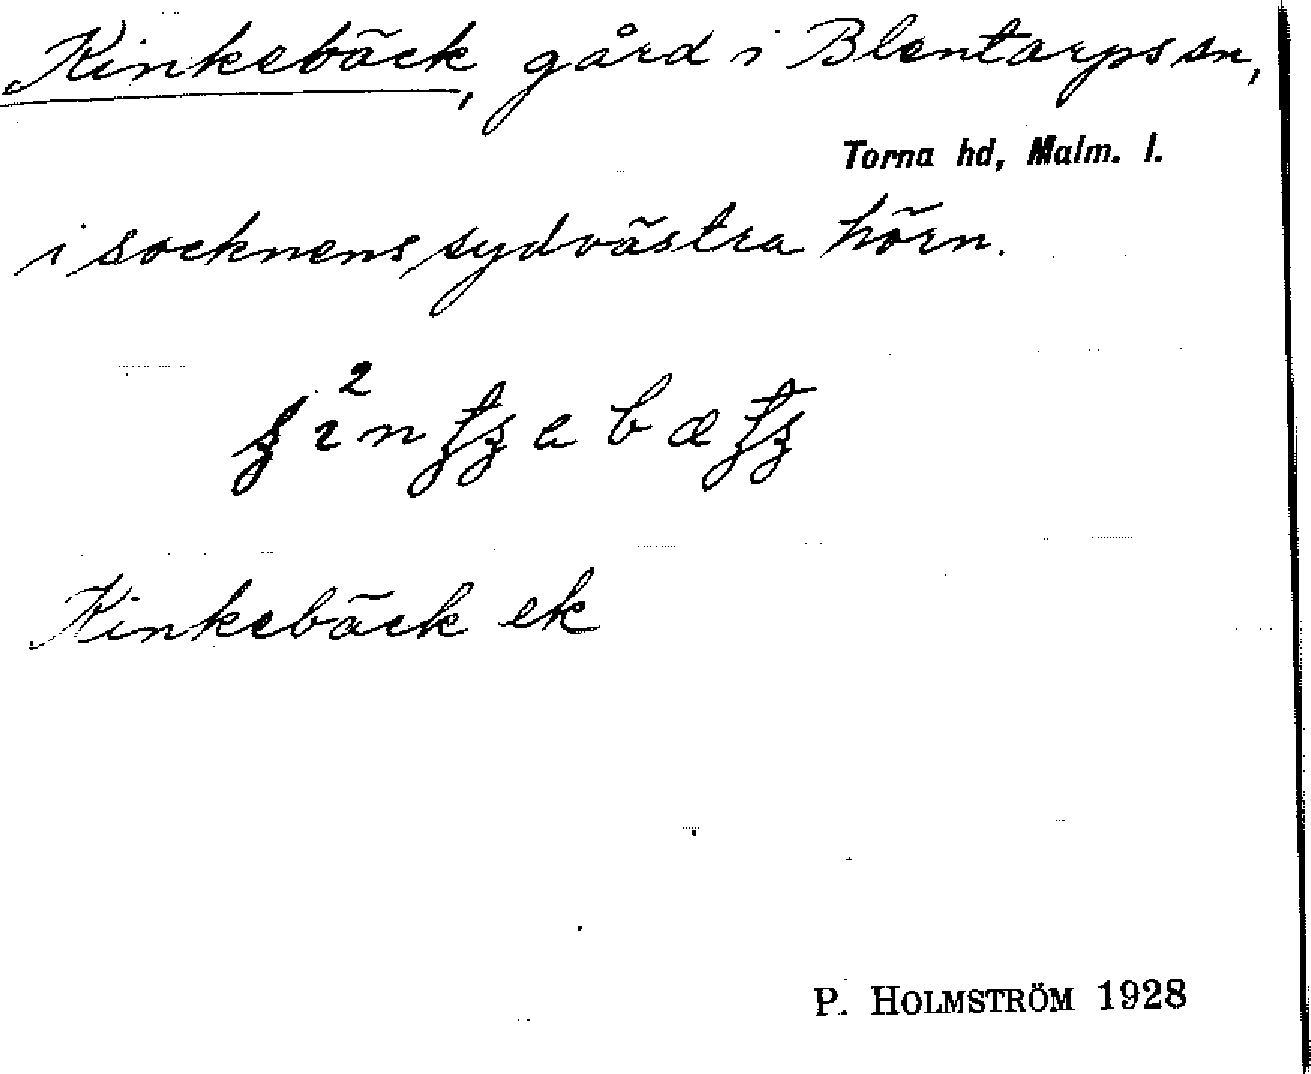 Kinkebäck, gård i Blentarps sn,
Torna hd, Malm. l.
i socknens sydvästra hörn.
Kinkebäck ek
P. HOLMSTRÖM 1928